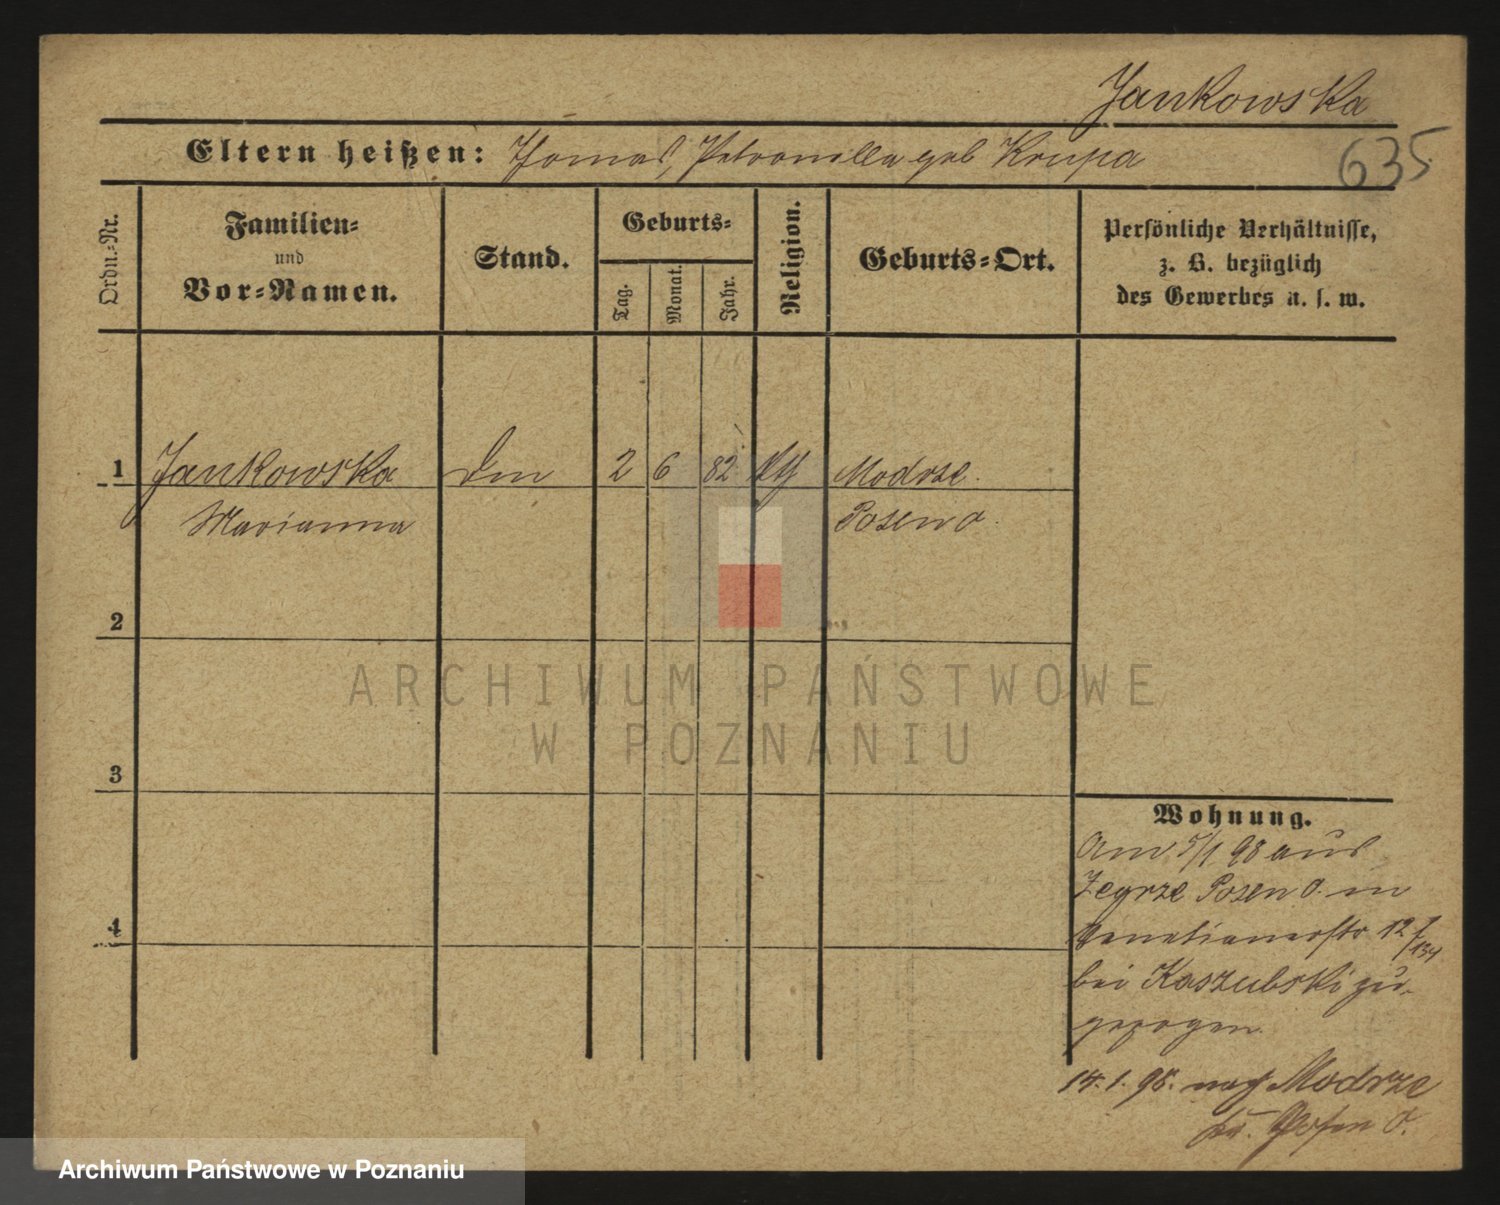 Jankowska
Eltern heißen: Thomas, Petronella geb Krupa
635
Ordn.-Nr.
Familien-
und
Vor-Namen.
Stand.
Geburts-
Tag.
Monat.
Jahr.
Religion.
Geburts-Ort.
Persönliche Verhältnisse,
z. B. bezüglich
des Gewerbes u. s. w.
1 Jankowska 2 6 82 Modrze
Marianna Posen O.
2
3
4
Wohnung.
Am 5/1 98 aus
Zegrze Posen O. in
Venetianerstr 12
bei Kaszubski zu-
gezogen
14. 1. 98. nach Modrze
Kr. Posen O.
ARCHIWUM PAŃSTWOWE
W POZNANIU
Archiwum Państwowe w Poznaniu